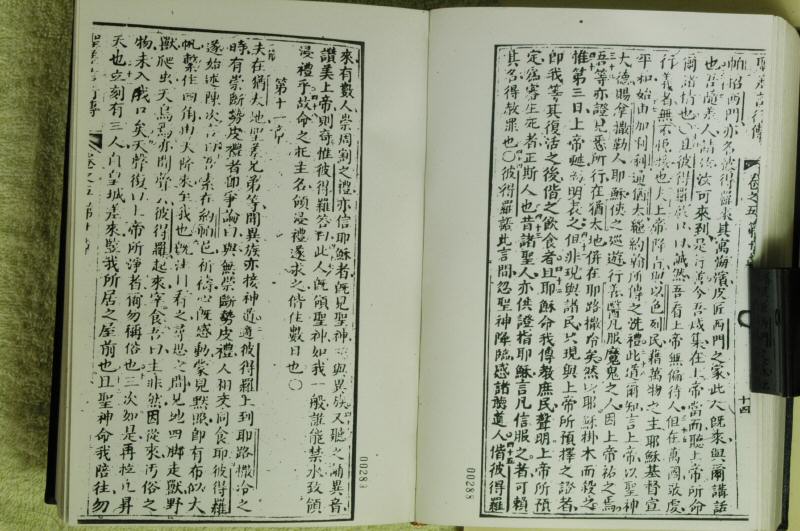 聖差言行傳 卷之五 十四
帕招西門亦名彼得羅者其寓海濱皮匠西門之家此人既來與爾講話
也吾隨差人請汝汝可來到是行善今吾咸集在上帝當面聽上帝所命
爾諸情也〇且彼得羅啟口曰誠然吾看上帝無偏待人但在萬國敬虔
行義者無不接也夫上帝降言以色列民藉萬物之主耶穌基督宣
平和始由加利利遍猶太繼約翰所傳之洗禮此道爾知言上帝以聖神
大德賜拿撒勒人耶穌使之巡遊行善醫凡服魔鬼之人因上帝祐之焉
吾等亦證見悉所行在猶太地併在耶路撒冷矣然以耶穌掛木而殺之
惟第三日上帝甦明表之但非現與諸民只現與上帝所預擇之證者
即我等其復活之後偕之飲食者且耶穌命我傳教庶民聲明上帝所預
定為審生死者正斯人也昔諸聖人亦供證指耶穌言凡信服之者可賴
其名得赦罪也〇彼得羅講此言間忽聖神降臨感諸聽道人偕彼得羅
00288
來有數人崇周割之禮亦信耶穌者既見聖神與異族又聽之誦異音
讚美上帝則奇惟彼得羅答曰此人既領聖神如我一般誰能禁水致領
浸禮乎故命之托主名領浸禮遂求之偕住數日也〇
第十一章
夫在猶太地聖差兄弟等聞異族亦接神道適彼得羅上到耶路撒冷之
時有崇斷勢皮禮者即爭論曰與無崇斷勢皮禮人相來同食耶彼得羅
遂始述陳次言曰吾素在約帕邑祈禱心既感動蒙見默照即有布似大
帆繫住四角由天降來至我也既注目看之尋思之間見地四脚走獸野
獸爬虫天鳥焉亦聞聲曰彼得羅起來宰食吾曰主非然因從來污俗之
物未入我口矣天聲復曰上帝所淨者爾勿稱俗也三次如是再拉上昇
天也立刻有三人自皇城差來我所居之屋前也且聖神命我陪往勿
00289